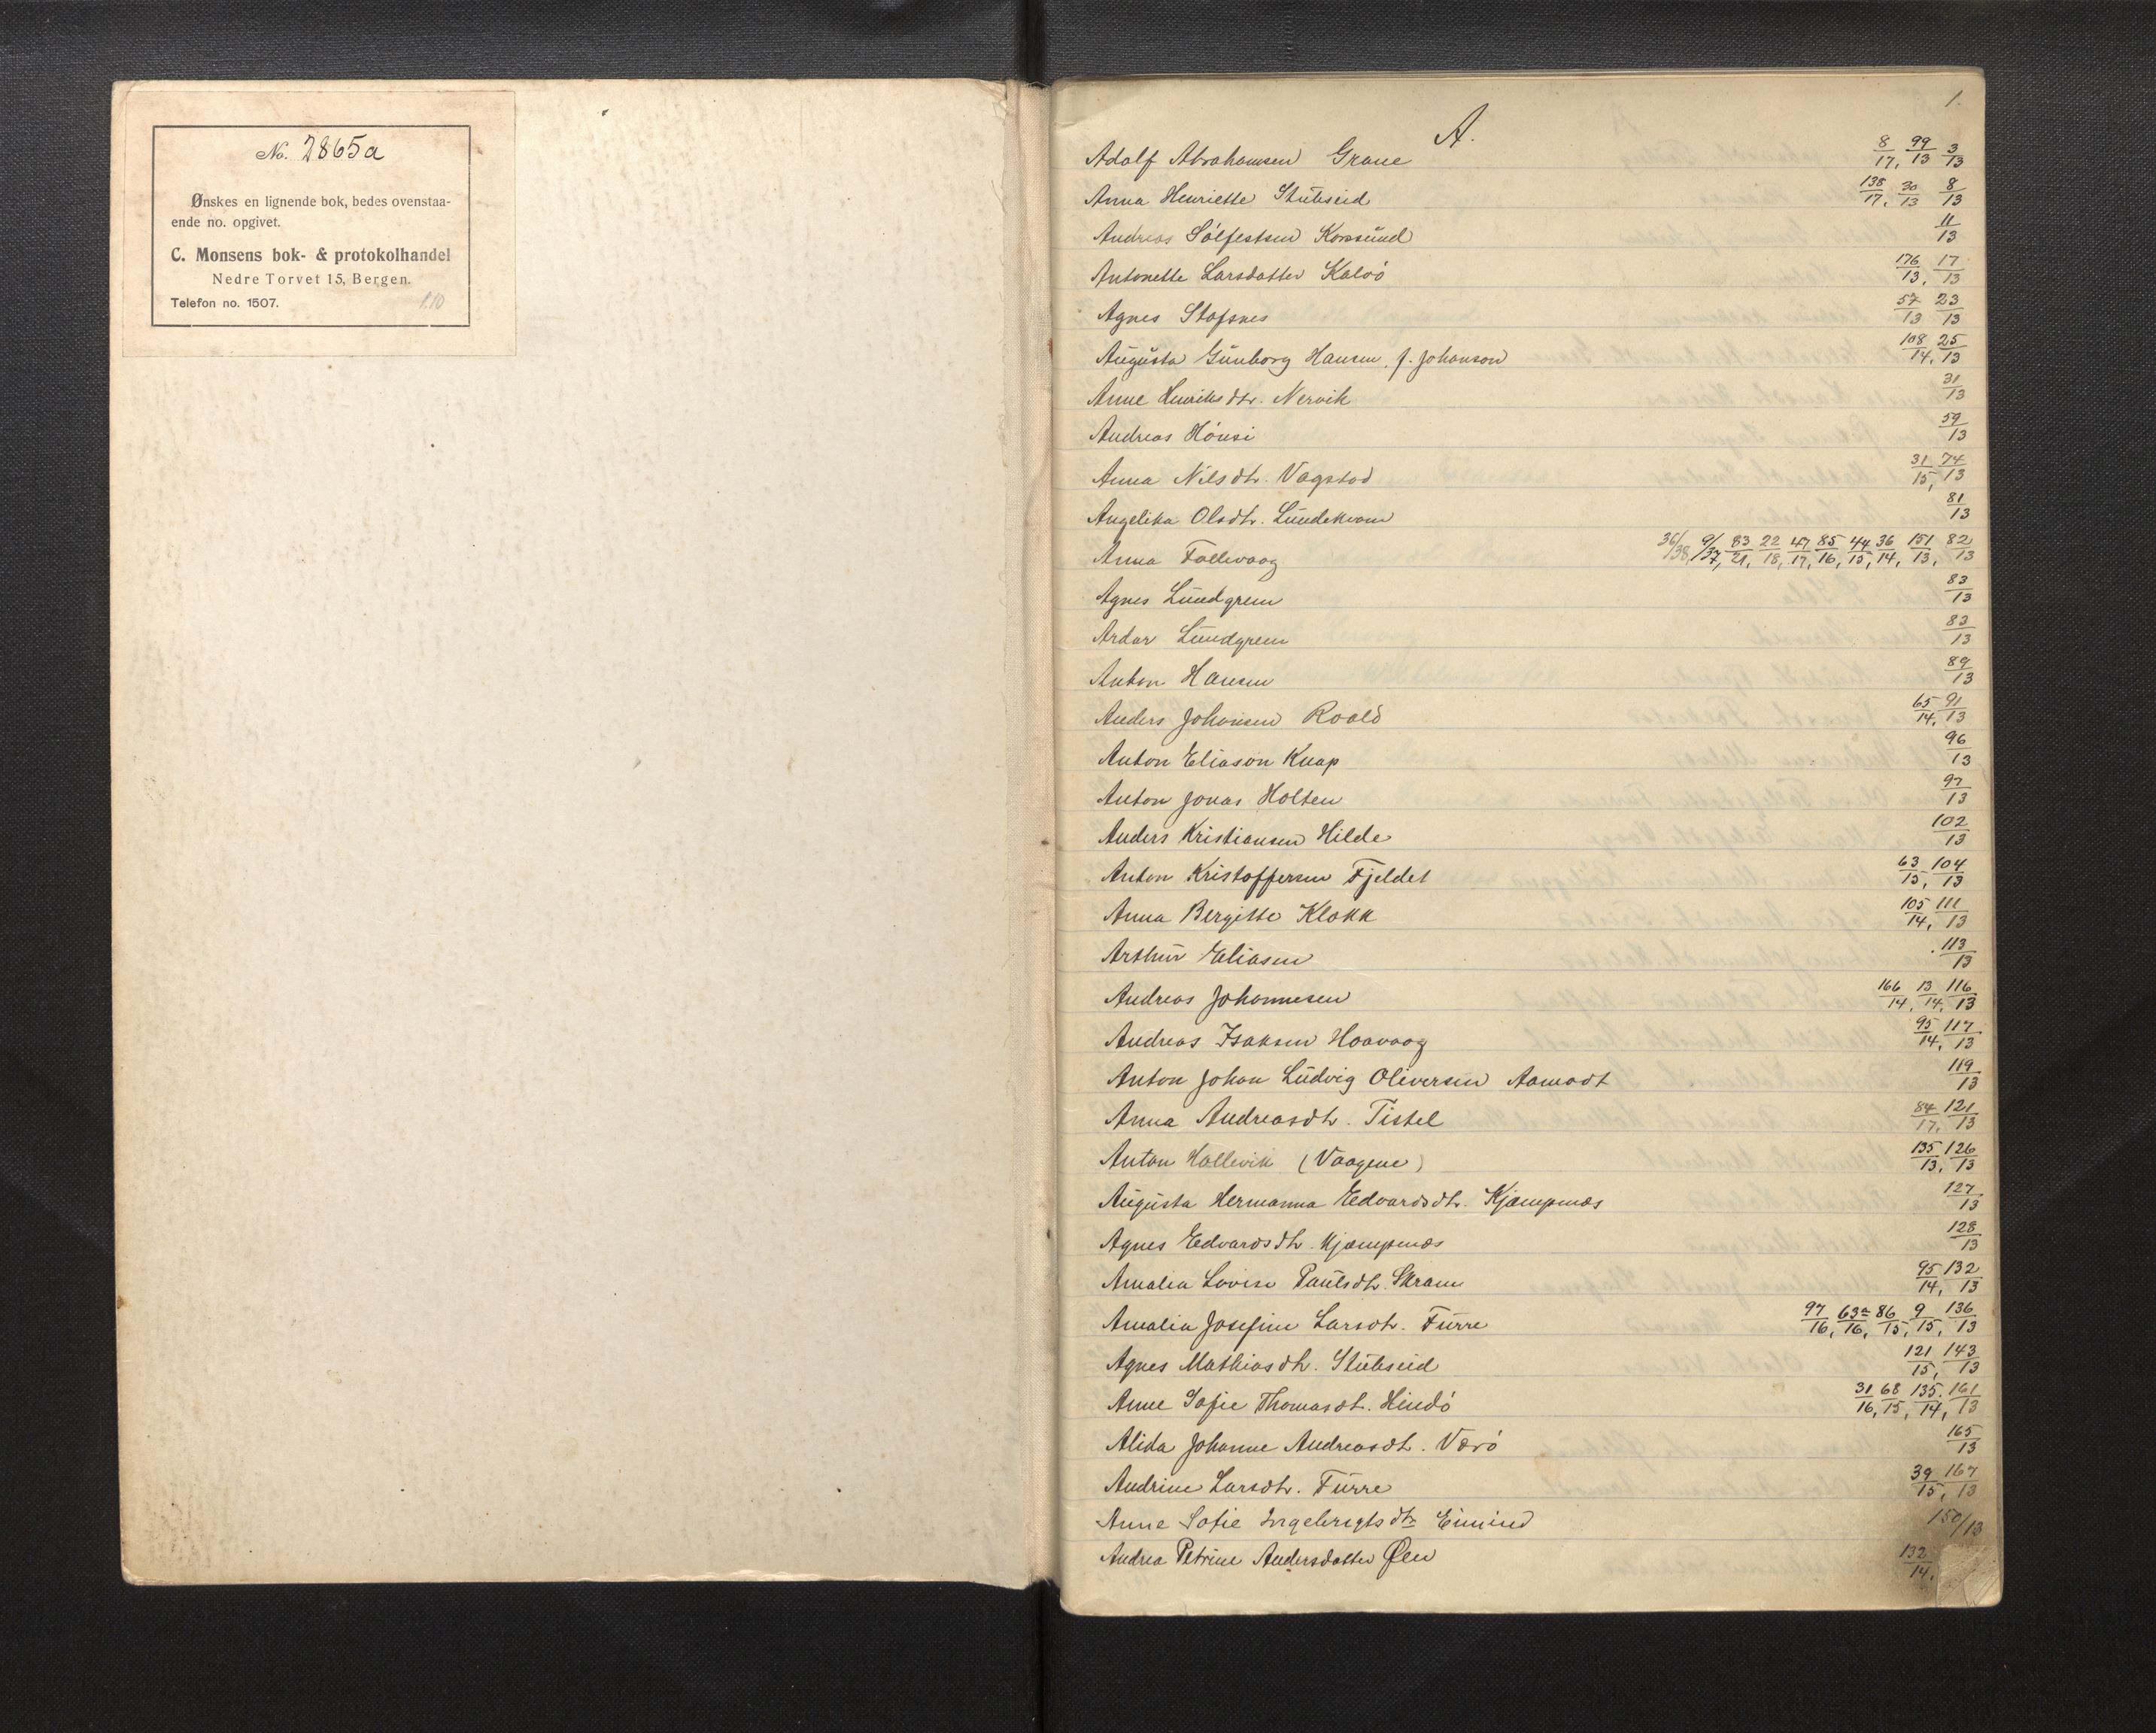 No. 2865a
Ønskes en lignende bok, bedes ovenstaa-
ende no. opgivet.
C. Monsens bok- & protokolhandel
Nedre Torvet 15, Bergen.
Telefon no. 1507.
1.10
1.
A.
Adolf Abrahamsen Grane 8/17, 99/13 3/13
Anna Henriette Stubseid 138/17, 30/13 8/13
Andreas Sólfestsen Korssund 11/13
Antonette Larsdatter Kalvó 176/13, 17/13
Agnes Stafsnes 57/13 23/13
Augusta Gunborg Hansen f. Johanson 108/14, 25/13
Anne Henriksdtr. Nervik 31/13
Andreas Hónsi 59/13
Anna Nilsdtr. Vagstad 31/15, 74/13
Angelika Olsdtr. Lundekvam 81/13
Anna Follevaag 36/38, 9/37, 83/21, 22/18, 47/17, 85/16, 44/15, 36/14, 151/13, 82/13
Agnes Lundgren 83/13
Ardor Lundgren 83/13
Anton Hansen 89/13
Anders Johansen Roald 65/14, 91/13
Anton Eliason Knap 96/13
Anton Jonas Holten 97/13
Anders Kristiansen Hilde 102/13
Anton Kristoffersen Fjeldet 63/15, 104/13
Anna Bergitte Klokk 105/14, 111/13
Arthur Eliasen 113/13
Andreas Johannesen 166/14, 13/14, 116/13
Andreas Isaksen Haavaag 95/14, 117/13
Anton Johan Ludvig Oliversen Aamodt 119/13
Anna Andreasdtr. Tistel 84/17, 121/13
Anton Hallevik (Vaagene) 135/13, 126/13
Augusta Hermanna Edvardsdtr. Kjæmpnæs 127/13
Agnes Edvardsdtr. Kjæmpnæs 128/13
Amalia Lovise Paulsdtr. Skram 95/14, 132/13
Amalia Josefine Larsdtr. Furre 97/16, 63a/16, 86/15, 9/15, 136/13
Agnes Mathiasdtr. Stubseid 121/15, 143/13
Anne Sofie Thomasdt. Hindó 31/16, 68/15, 135/14, 161/13
Alida Johanne Andreasdt. Væró 165/13
Andrine Larsdtr. Furre 39/15, 167/13
Anne Sofie Ingebrigtsdtr Eimind 150/13
Andrea Petrine Andersdatter Øen 132/14,